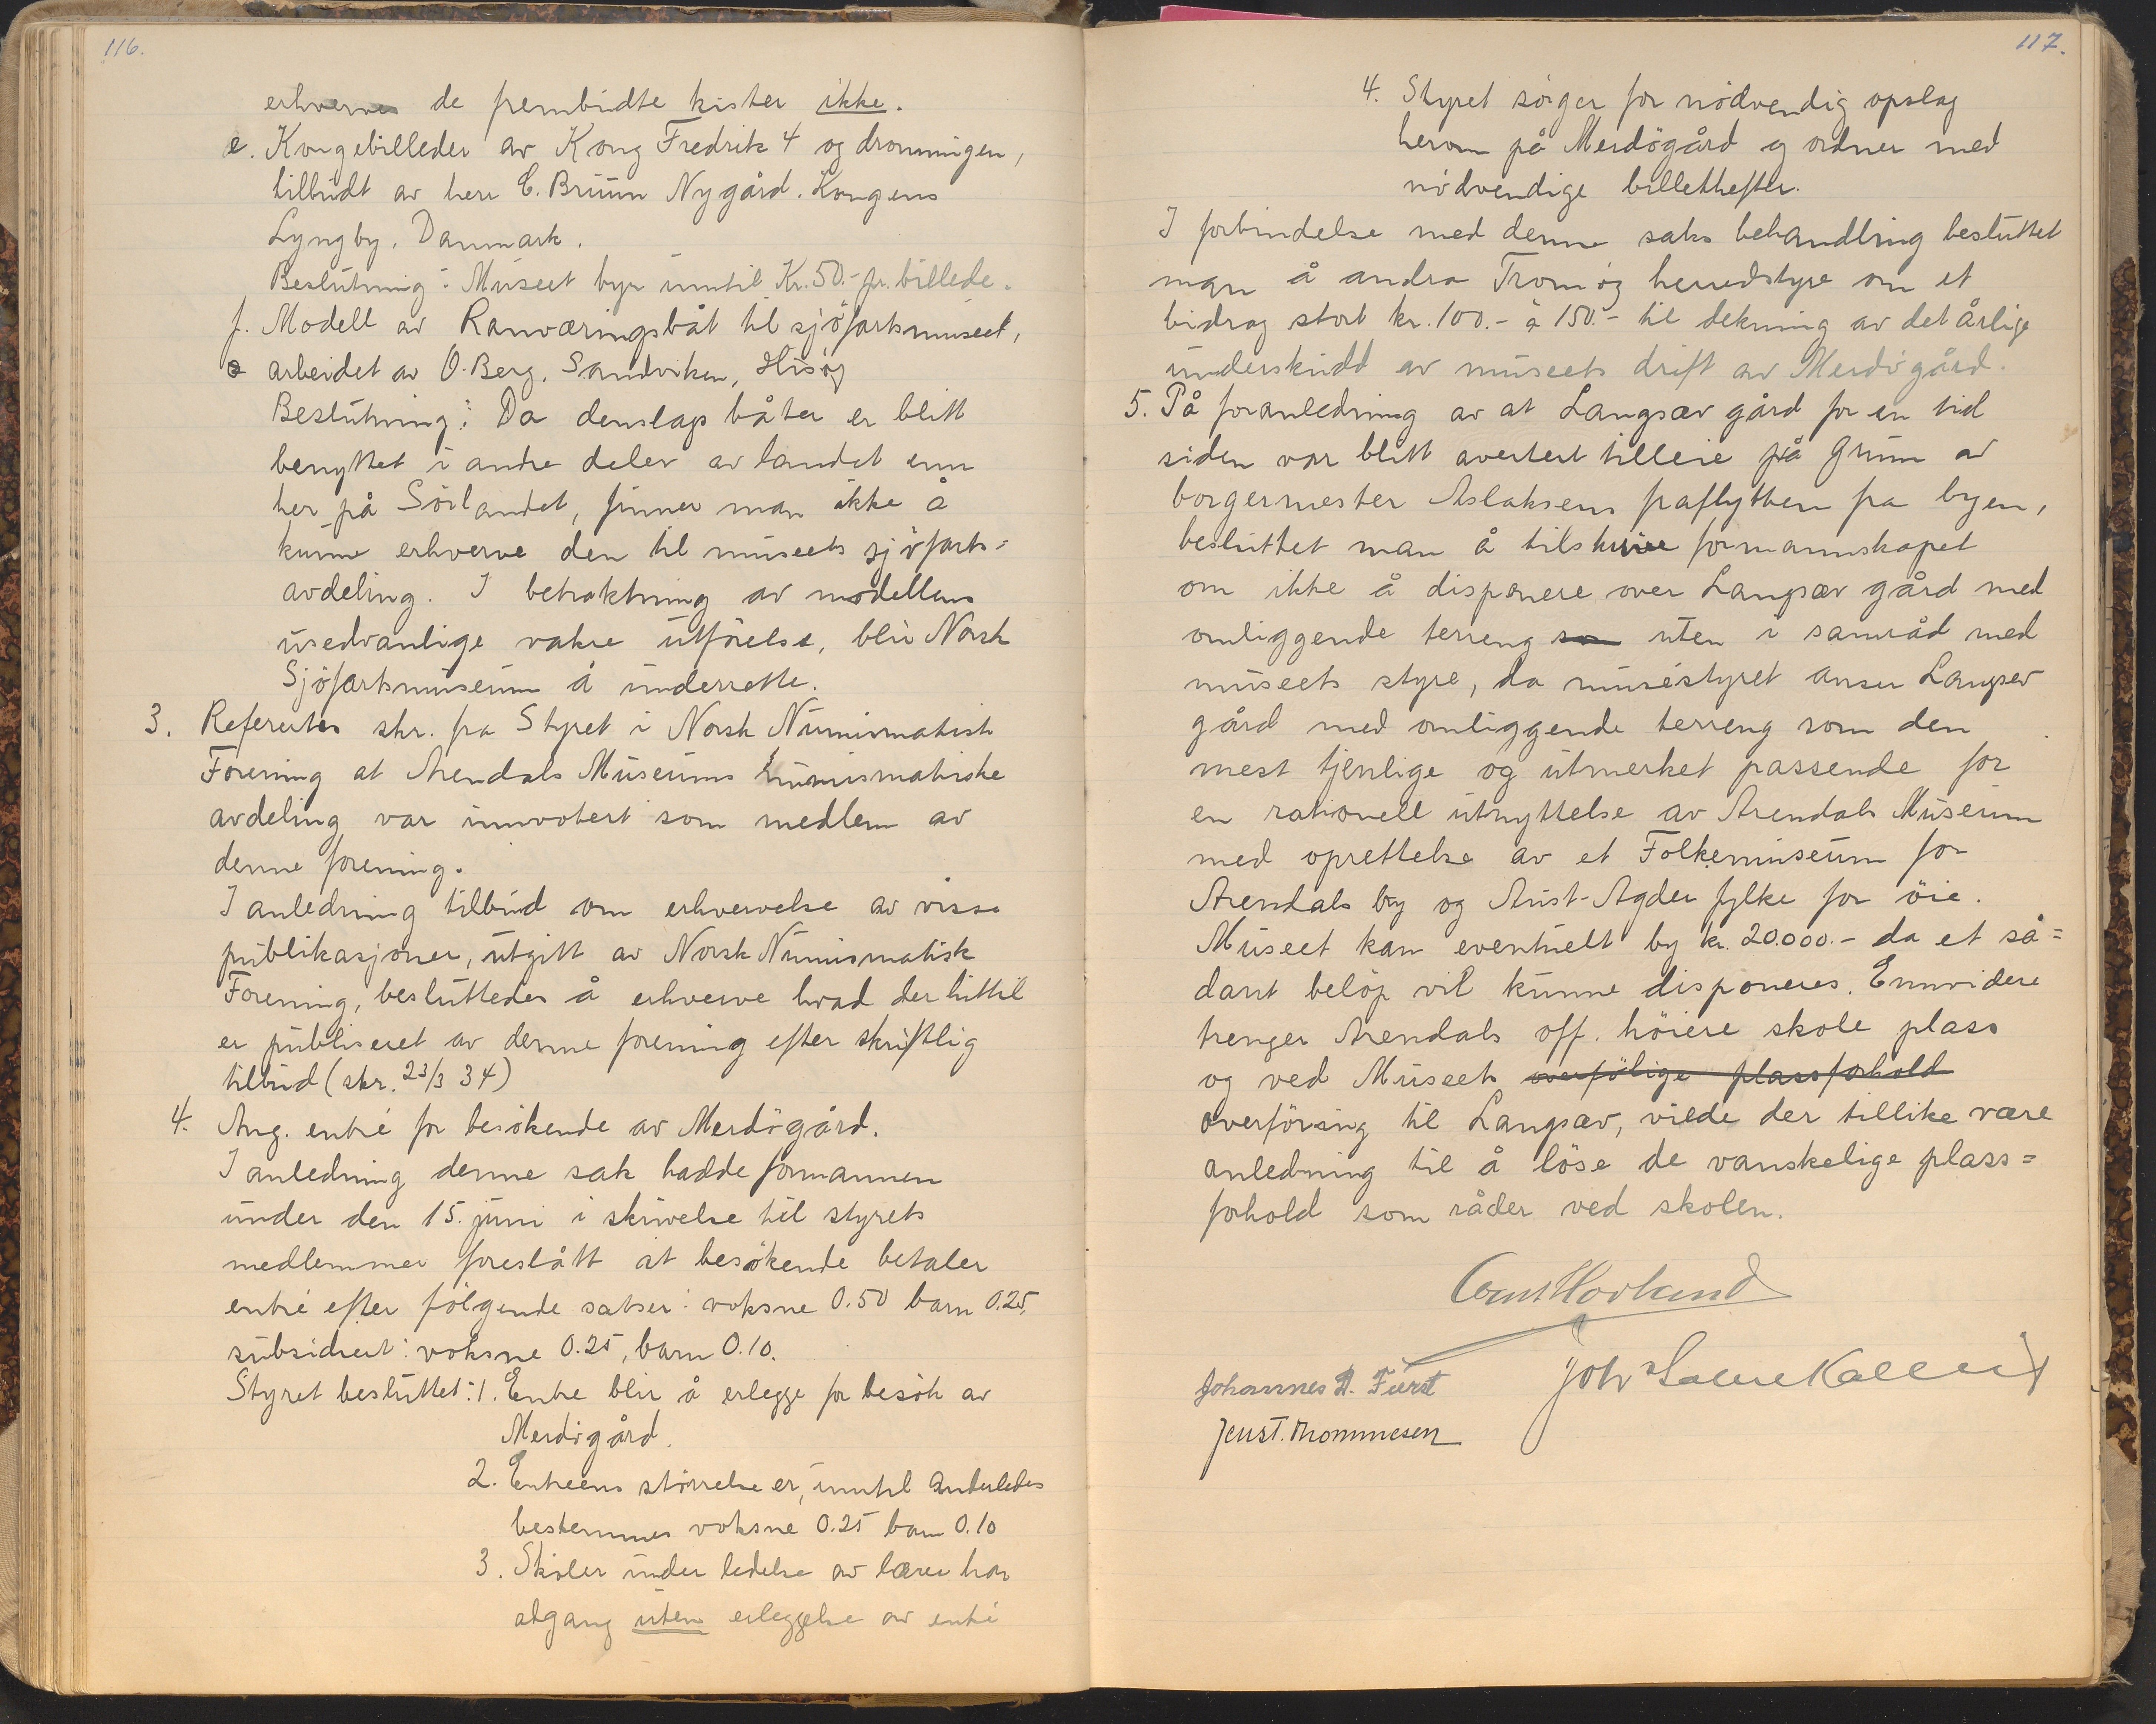 116.
erhverves de frembudte kister ikke.
e. Kongebilleder av Kong Fredrik 4 og dronningen,
tilbudt av herr C. Bruun Nygård. Kongens
Lyngby. Danmark.
Beslutning: Museet byr inntil Kr. 50.- pr. billede.
f. Modell av Ranværingsbåt til sjöfartsmuseet,
arbeidet av O. Berg. Sandviken, Hisöy
Beslutning: Da denslags båter er blitt
benyttet i andre deler av landet enn
her på Sörlandet, finner man ikke å
kunne erhverve den til museets sjöfarts=
avdeling. I betraktning av modellens
usedvanlige vakre utförelse, blir Norsk
Sjöfartsmuseum å underrette.
3. Refertes skr. fra Styret i Norsk Numismatisk
Forening at Arendals Museums numismatiske
avdeling var innvotert som medlem av
denne forening.
I anledning tilbud om erhvervelse av visse
publikasjoner, utgitt av Norsk Numismatisk
Forening, besluttedes å erhverve hvad der hittil
er publiseret av denne forening efter skriftlig
tilbud (skr. 23/3 34)
4. Ang. entré for besökende av Merdögård.
I anledning denne sak hadde formannen
under den 15. juni i skrivelse til styrets
medlemmer foreslått at besökende betaler
entré efter fölgende satser: voksne 0.50 barn 0.25,
subsidiert: voksne 0.25, barn 0.10.
Styret besluttet: 1. Entre blir å erlegge for besök av
Merdögård.
2. Entreens störrelse er, inntil anderledes
bestemmes voksne 0.25 barn 0.10
3. Skoler under ledelse av lærer har
adgang uten erleggelse av entré
117.
4. Styret sörger for nödvendig opslag
herom på Merdögård og ordner med
nödvendige billethefter.
I forbindelse med denne saks behandling besluttet
man å andra Tromöy herredstyre om et
bidrag stort kr. 100.- à 150.- til dekning av det årlige
underskudd av museets drift av Merdögård.
5. På foranledning av at Langsæv gård for en tid
siden var blitt avertert tilleie på grunn av
borgermester Aslaksens fraflytten fra byen,
besluttet man å tilskrive formannskapet
om ikke å disponere over Langsæv gård med
omliggende terreng som uten i samråd med
museets styre, da muséstyret anser Langsev
gård med omliggende terreng som den
mest tjenlige og utmerket passende for
en rationell utnyttelse av Arendals Museum
med oprettelse av et Folkemuseum for
Arendals by og Aust-Agder fylke for öie.
Museet kan eventuelt by kr. 20.000.- da et så=
dant belöp vil kunne disponeres. Ennvidere
trenger Arendals off. höiere skole plass
og ved Museets overfölige plassforhold
overföring til Langsæv, vilde der tillike være
anledning til å löse de vanskelige plass=
forhold som råder ved skolen.
Johannes A. Fürst
Jens T. Thommesen